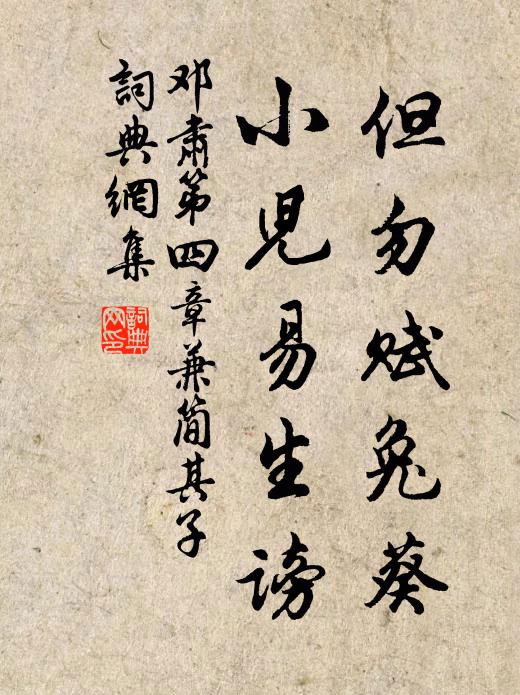 但勿赋兔葵
小児易生谤
邓肃第四章兼简其子
詞典網集
詞典
网印